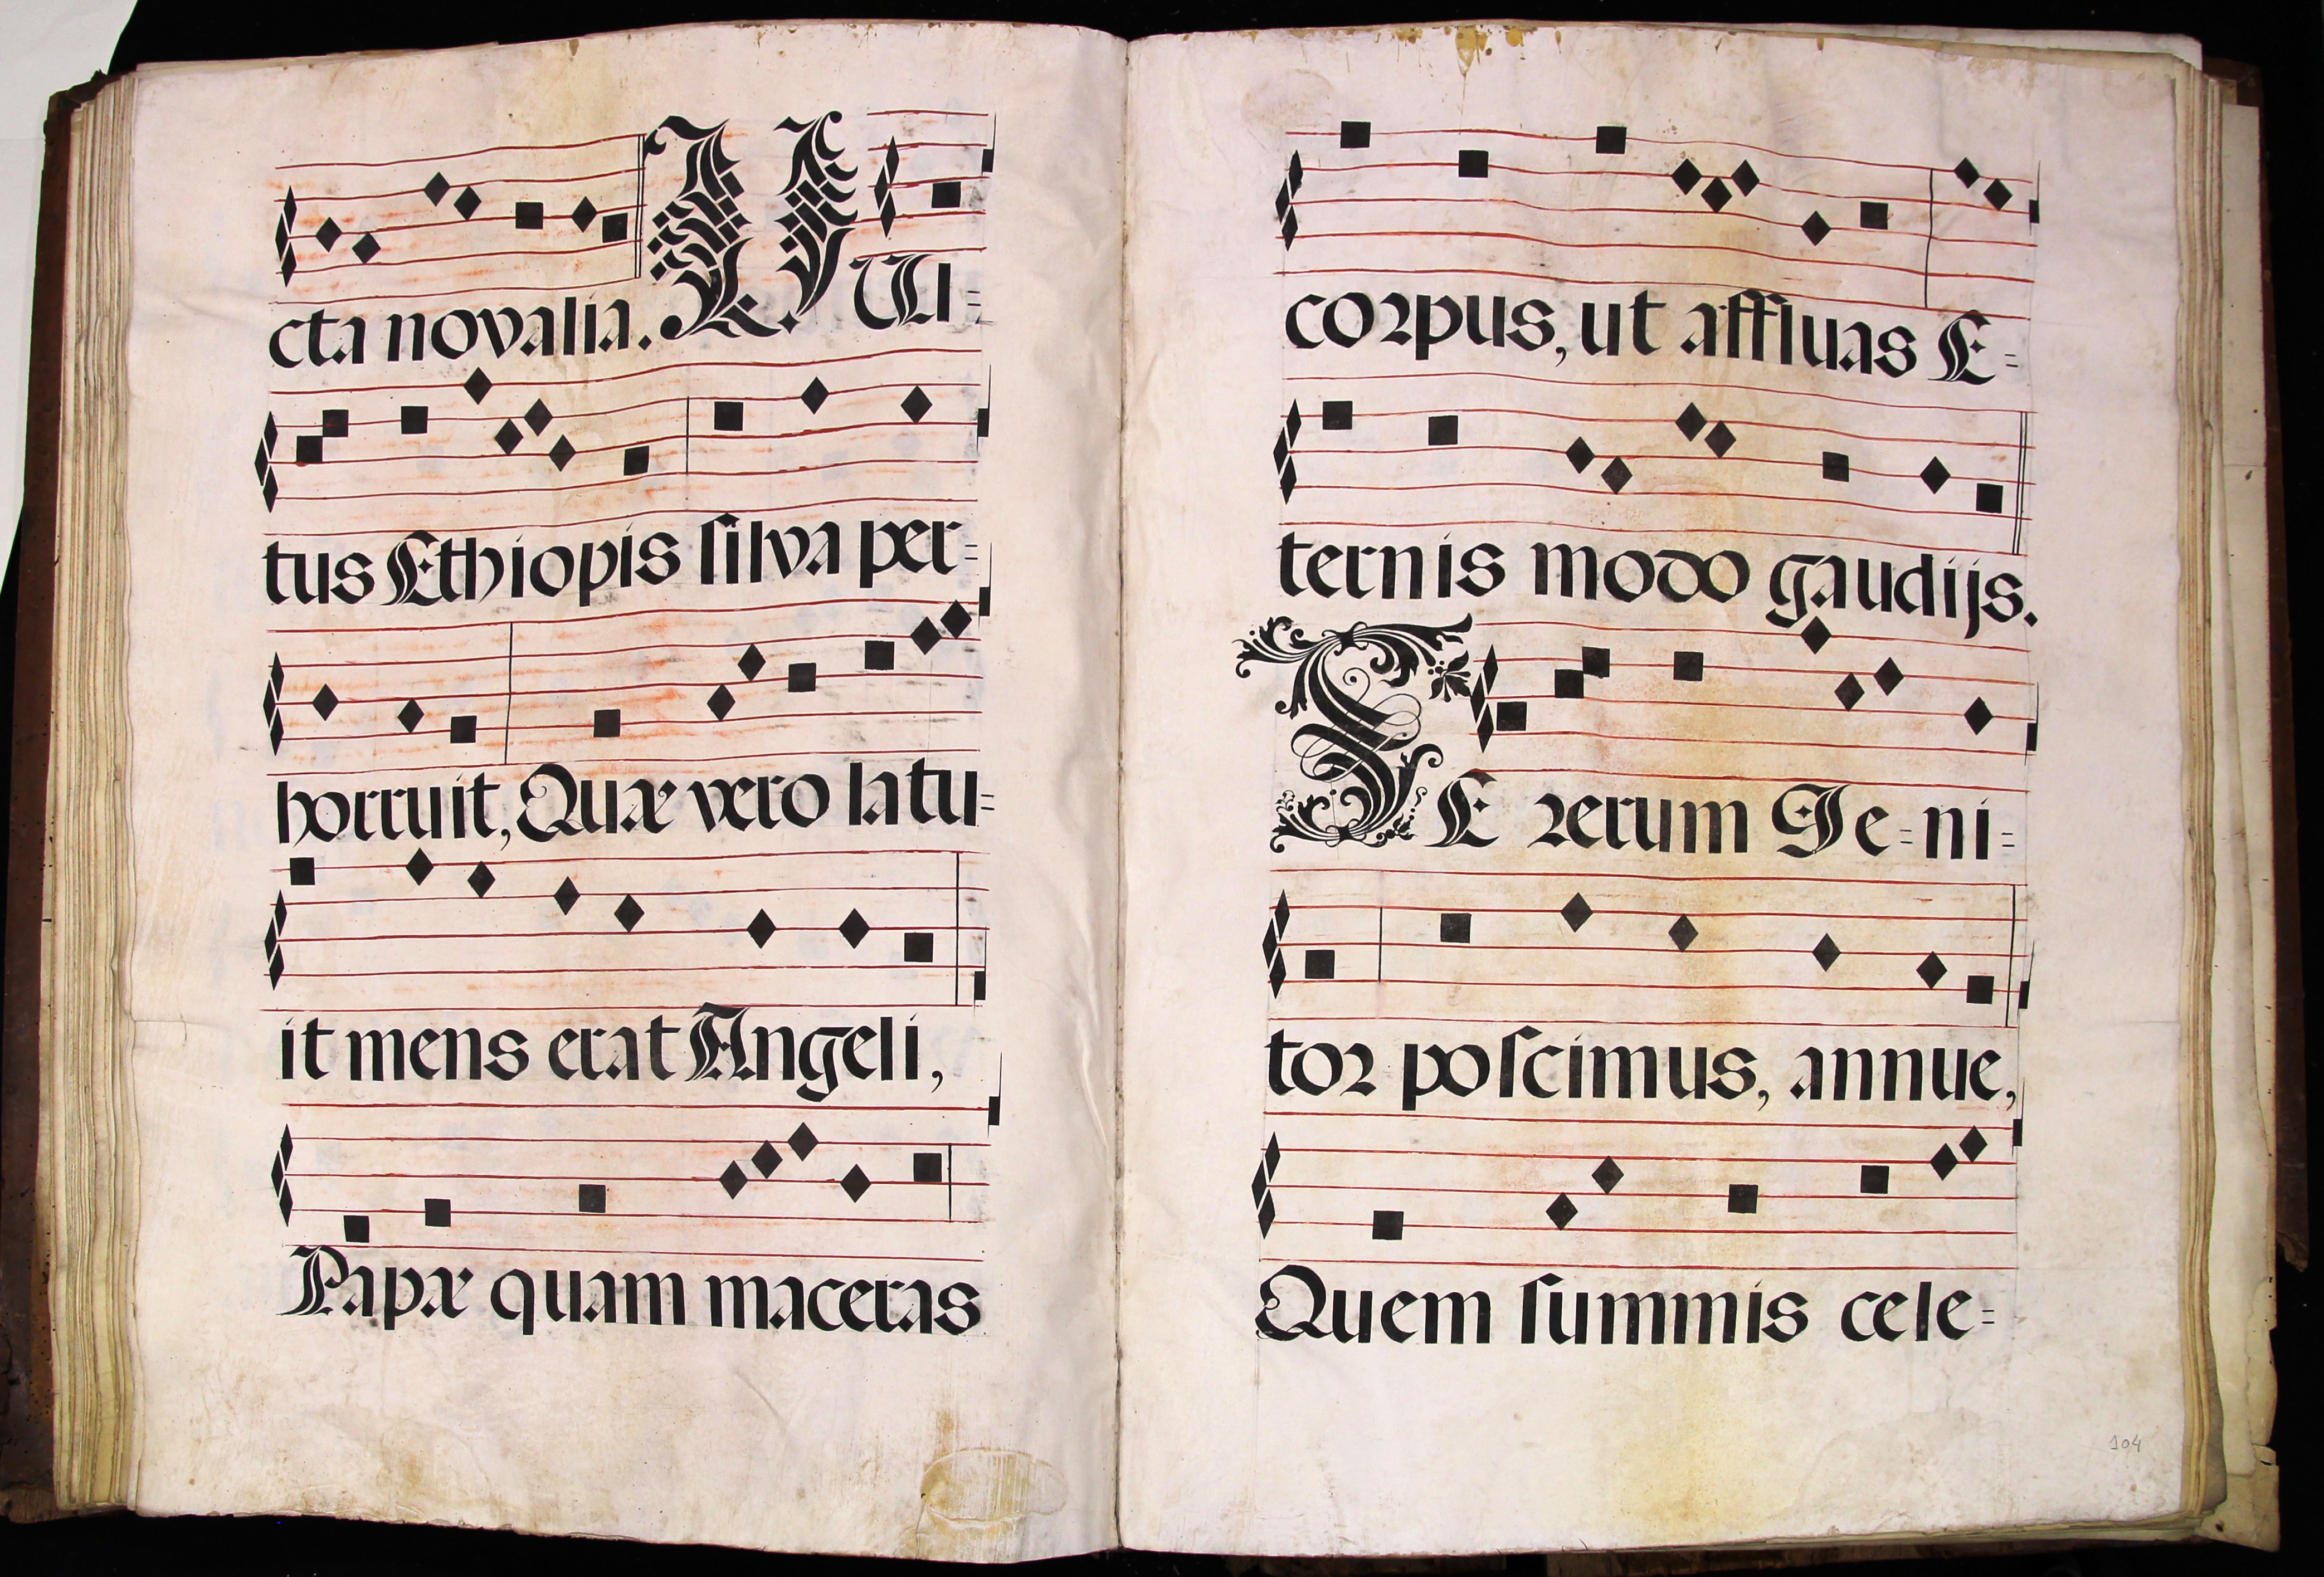 cta novalia. VUl=
tus Ethiopis ſilva per=
horruit, Quæ vero latu=
it mens erat Angeli,
Papæ quam maceras
corpus, ut affluas E=
ternis modo gaudijs.
TE rerum Ge=ni=
tor poſcimus, annue,
Quem ſummis cele=
104